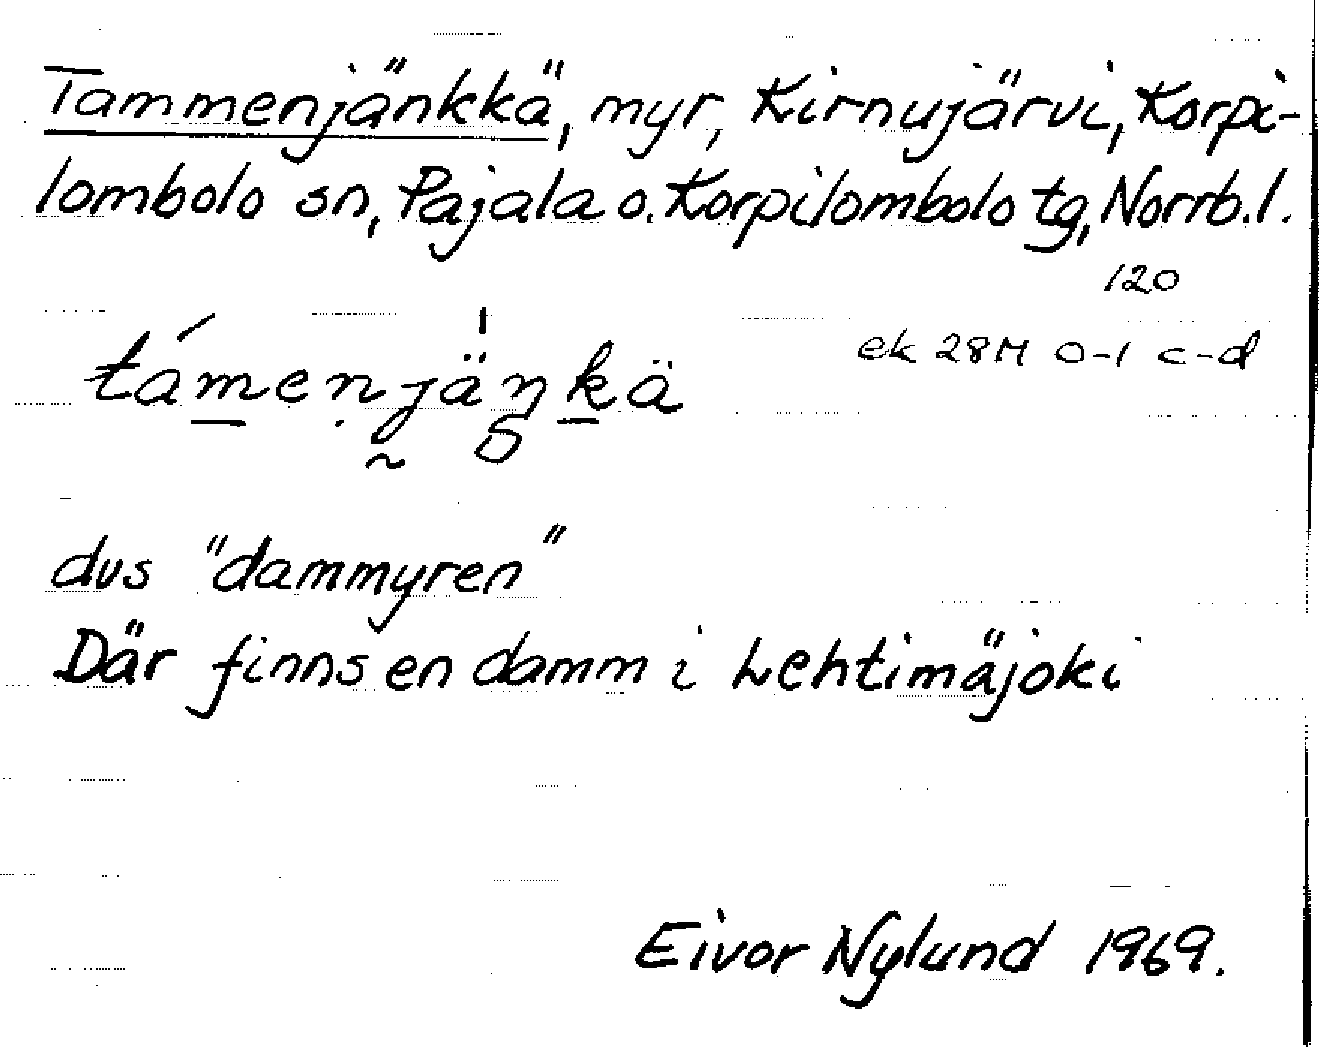 Tammenjänkkä, myr, Kirnujärvi, Korpi-
lombolo sn, Pajala o. Korpilombolo tg, Norrb.l.
120
ek 28M 0-1 c-d
támenjäŋkä
dvs "dammyren"
Där finns en damm i Lehtimäjoki
Eivor Nylund 1969.